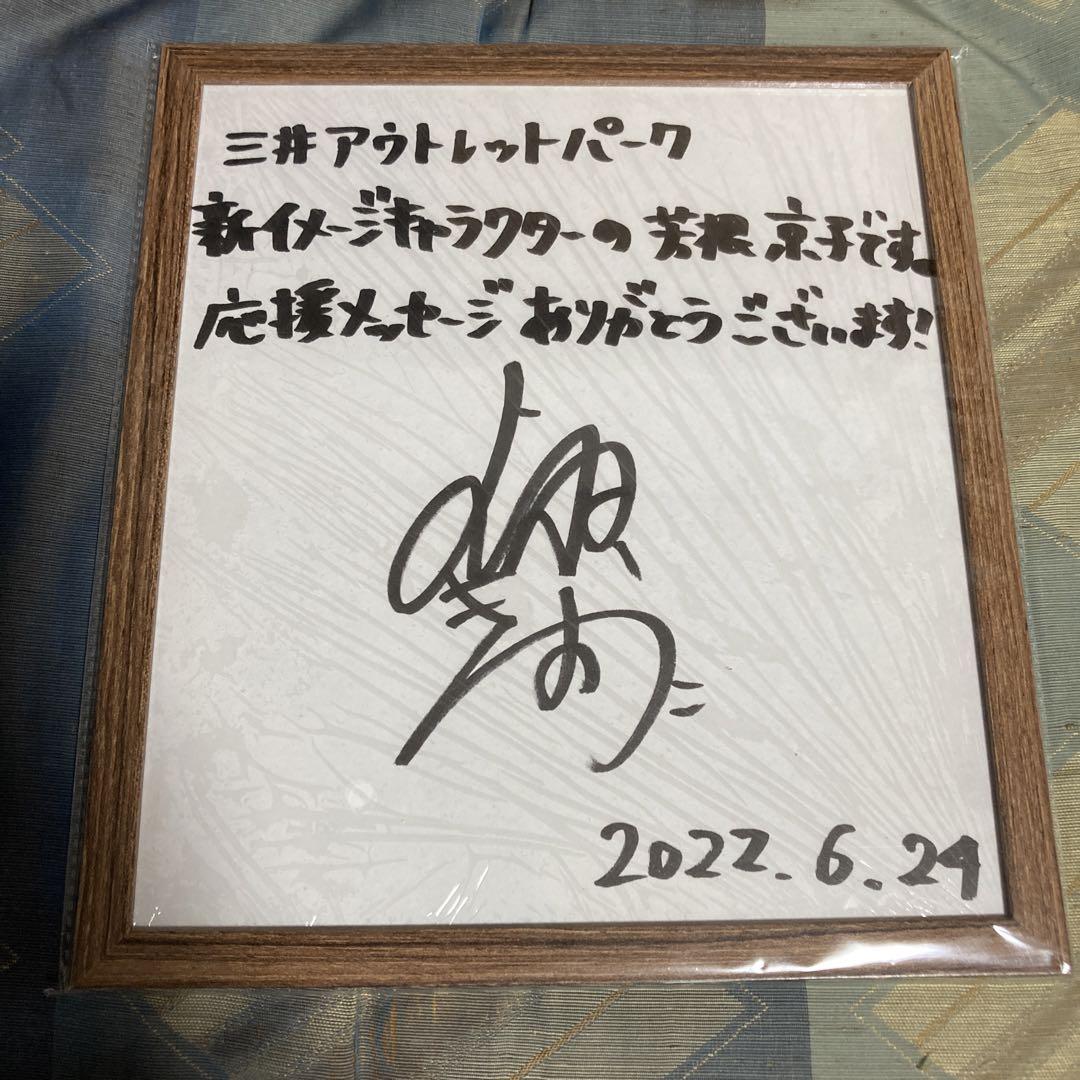 三井アウトレットパーク
新イメージキャラクターの芳根京子です。
応援メッセージありがとうございます!
2022.6.24